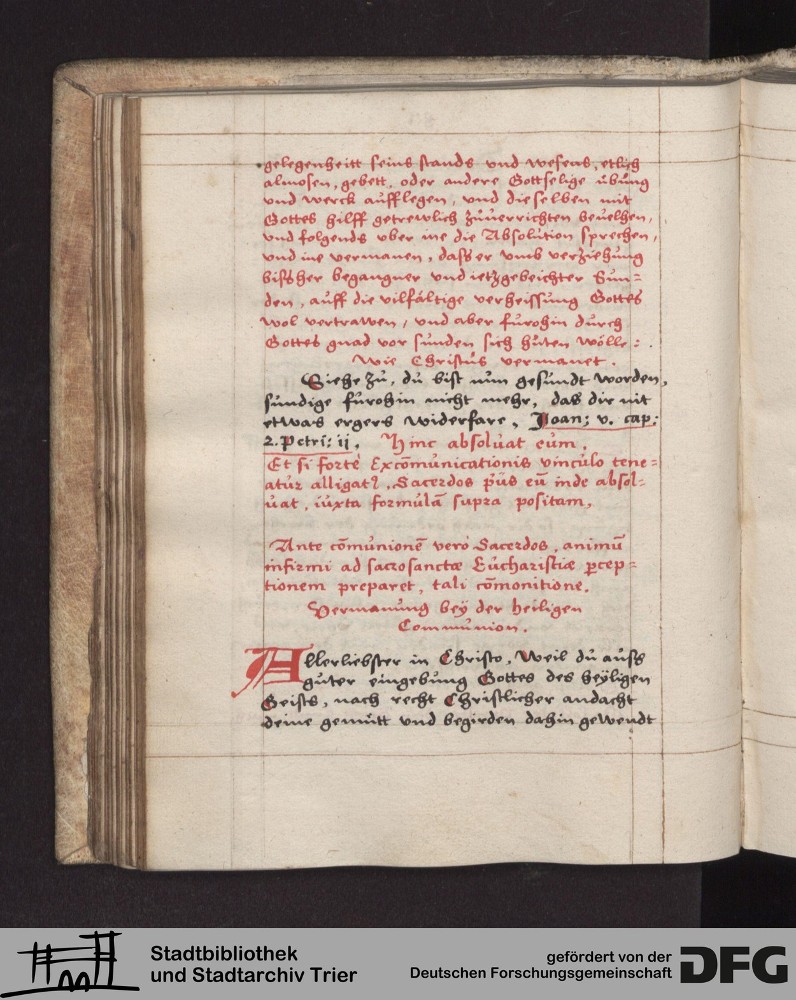 gelegenheitt seins stands vnd wesens, etlich
almosen, gebett, oder andere Gottselige übung
vnd werck aufflegen, vnd dieselben mit
Gottes hilff getrewlich zuuerrichten beuelhen,
vnd folgends vber ine die Absolution sprechen,
vnd ine vermanen, dass er vmb verziehung
bissher begangner vnd ietzgebeichter Sun=
den, auff die vilfältige verheissung Gottes
wol vertrawen, vnd aber furohin durch
Gottes gnad vor sunden sich hüten wölle:.
Wie Christus vermanet.
Siehe zu, du bist nun gesundt worden,
sundige furohin nicht mehr, das dir nit
etwas ergers widerfare, Joan: v. cap:
2. Petri: ij. Hinc absoluat eum.
Et si fortè Excōmunicationis vinculo tene=
atur alligatꝰ, Sacerdos p̄us eū inde absol=
uat, iuxta formulā supra positam,
Ante cōmunionē verò Sacerdos, animū
infirmi ad sacrosanctæ Eucharistiæ ꝑcep=
tionem preparet, tali cōmonitione.
Vermanung beÿ der heiligen
Communion.
Allerliebster in Christo, Weil du auss
guter eingebung Gottes des heÿligen
Geists, nach recht Christlicher andacht
deine gemütt vnd begirden dahin gewendt
Stadtbibliothek
und Stadtarchiv Trier
gefördert von der
Deutschen Forschungsgemeinschaft
DFG